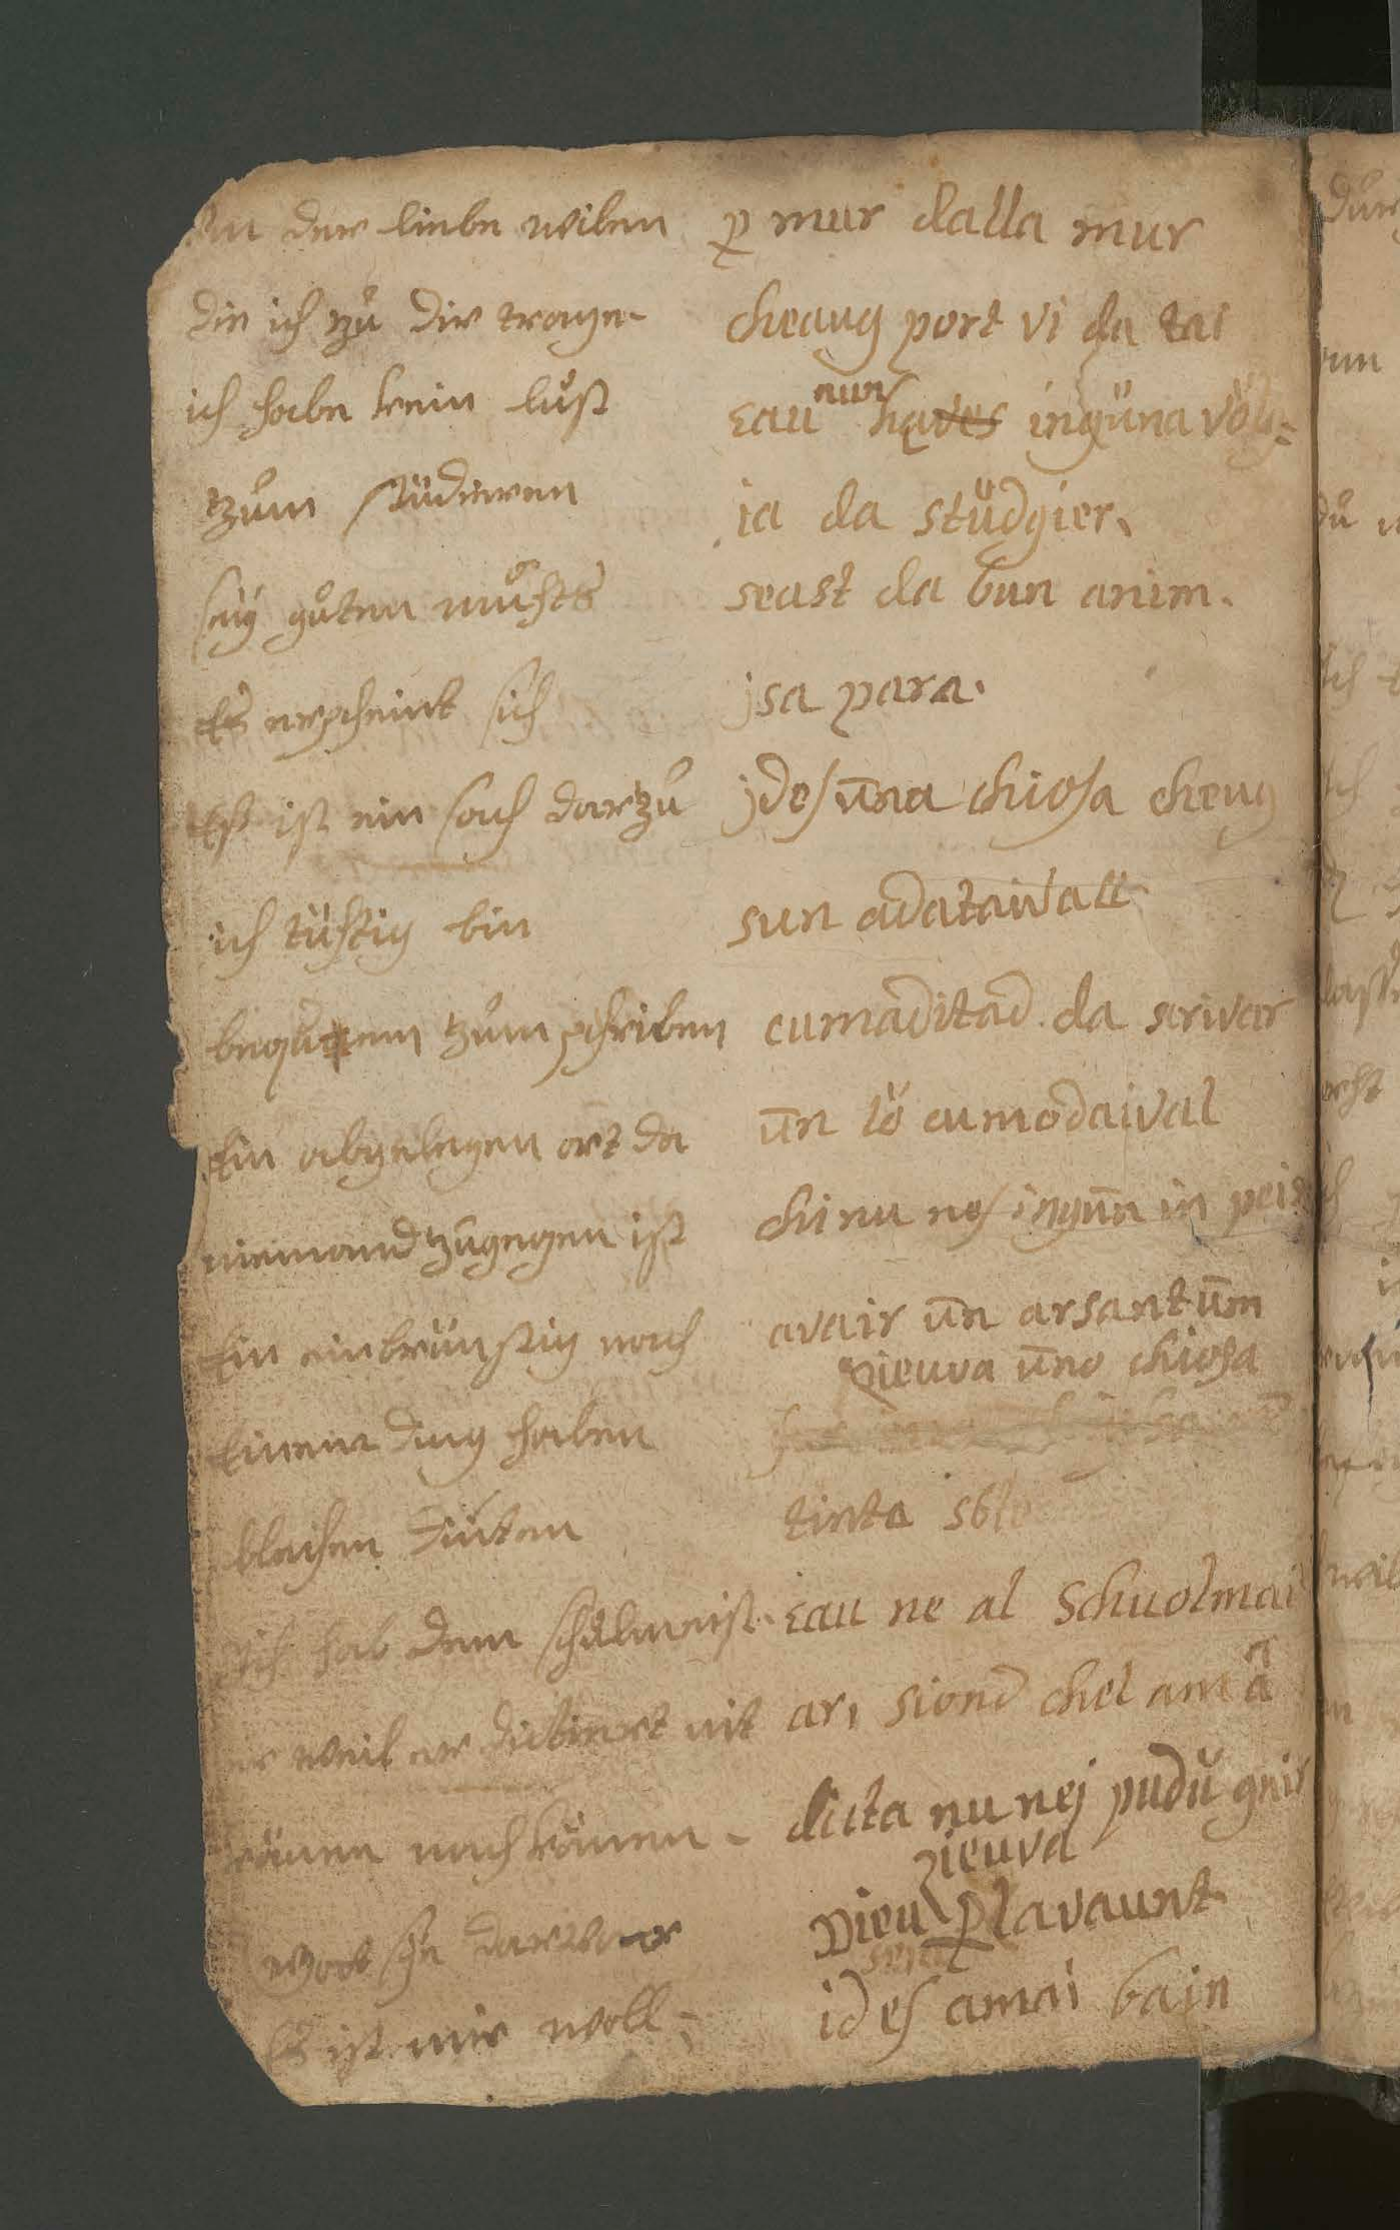 der liebe wilen p mur dalla mur
die ich zů dir trage- cheaug port vi da tai
ich habe kein lůst eau nun haves ingüna völg=
zům stüdieren ia da stüdgier.
seÿ gůten můhts seast da bun anim.
Es erscheint sich jsa para.
Est ist ein sach darzů jdes üna chiosa cheug
ich tühtig bin sun adataivall
bequem zům schriben cumaditad da scrivar
Ein abgelegen ort da ün lö cumodaival
niemand zůgegen ist chi nu nes ingün in peis
Ein einbrünstig nach avair ün arsantüm
zieuva üna chiosa
Einem ding haben
bleichen Dinten tinta sbl
Ich hab dem schůlmeist= eau ne al Schuolmai
er weil er dictiert nit ar, siond chel am ã
könen nachkomen - dicta nu nej pudü gnir
zieuva
was ist darvor Vieu plavaunt
Es ist mir woll ides amai bain